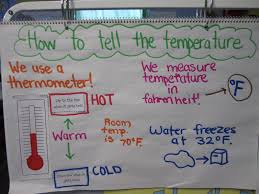 How to tell the temperature
We use a
thermometer!
HOT
Warm
COLD
We measure
temperature
in
fahrenheit!
°F
Room
temp.
is 70°F.
Water freezes
at 32°F.